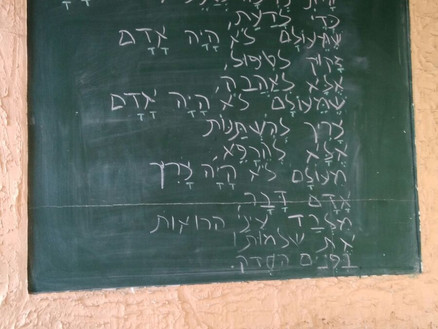 כְּדֵי לָדַעַת,
שֶׁמֵּעוֹלָם לֹא הָיָה אָדָם
זָקוּק לְטִפּוּל,
אֶלָּא לְאַהֲבָה,
שֶׁמֵּעוֹלָם לֹא הָיָה אָדָם
צָרִיךְ לְהִשְׁתַּנּוֹת
אֶלָּא לְהֵרָפֵא,
מֵעוֹלָם לֹא הָיָה צָרִיךְ
אָדָם דָּבָר,
מִלְּבַד עֵינַיִ הרוֹאוֹת
אֶת שלמוּתוֹ
בִּפְנִים הַסֶּדֶק.